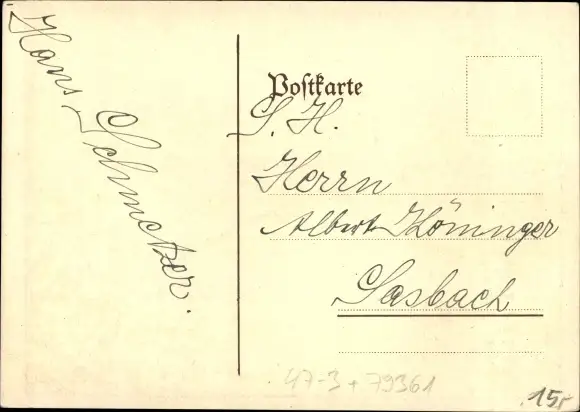 Hans Schmetzer.
Postkarte
S. H.
Herrn
Albert Köninger
Sasbach
47-3+79361
15,-